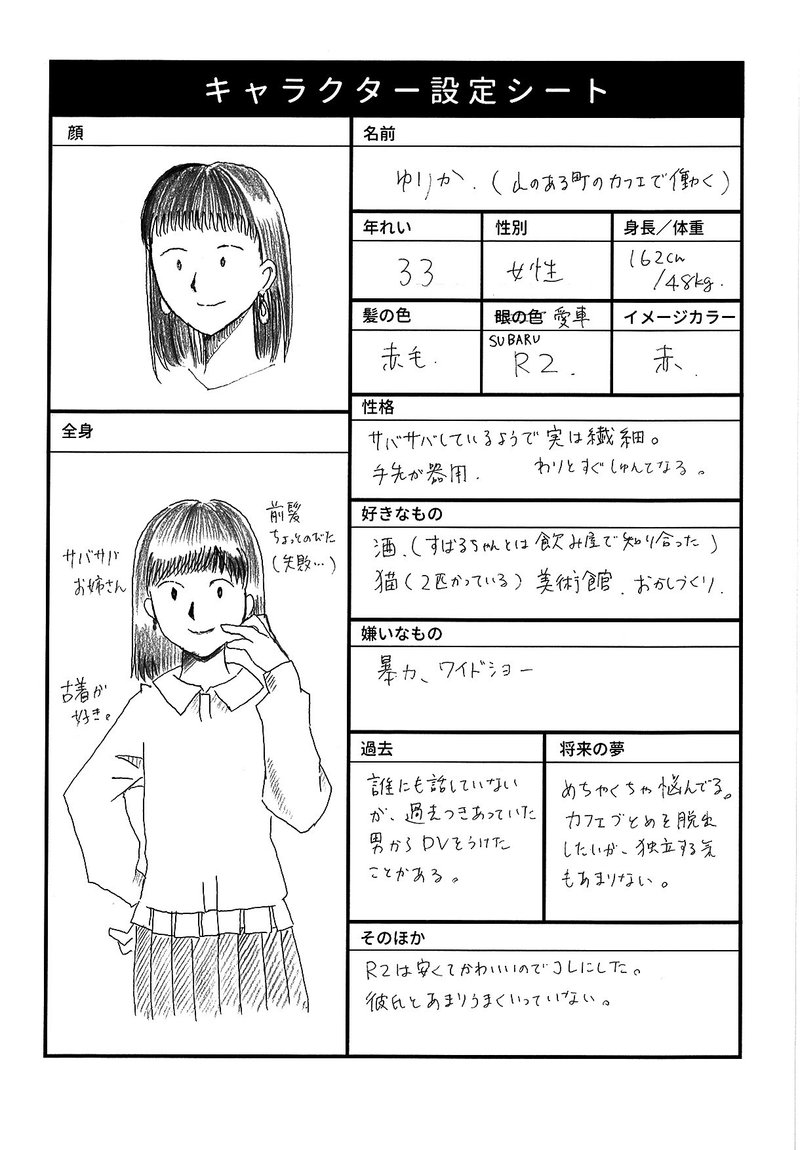 キャラクター設定シート
顔
名前
ゆりか.(山のある町のカフェで働く)
年れい
性別
身長/体重
33
女性
162cm
/48kg.
髪の色
眼の色 愛車
イメージカラー
赤毛.
SUBARU
R2.
赤、
性格
サバサバしているようで実は繊細。
手先が器用. わりとすぐしゅんてなる。
好きなもの
酒.(すばるちゃんとは飲み屋で知り合った)
猫(2匹かっている)美術館.おかしづくり.
嫌いなもの
暴力、ワイドショー
過去
誰にも話していない
が、過去つきあっていた
男からDVをうけた
ことがある。
将来の夢
めちゃくちゃ悩んでる。
カフェづとめを脱出
したいが、独立する気
もあまりない。
そのほか
R2は安くてかわいいのでコレにした。
彼氏とあまりうまくいっていない。
全身
前髪
ちょっとのびた
(失敗…)
サバサバ
お姉さん
古着が
好き。